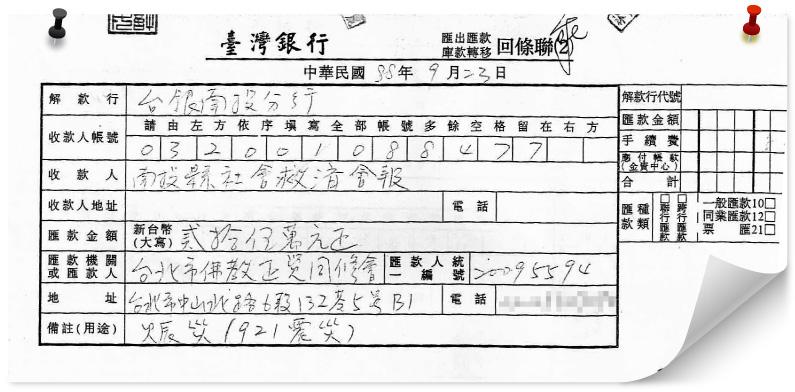 臺灣銀行 匯出匯款 庫款轉移 回條聯 2
中華民國 88年 9月 23日
解款行 台銀南投分行
請由左方依序填寫全部帳號多餘空格留在右方
收款人帳號 032001088477
收款人 南投縣社會救濟會報
收款人地址 電話
匯款金額 新台幣(大寫) 貳拾伍萬元正
匯款機關或匯款人 台北市佛教正覺同修會 匯款人統一編號 20095594
地址 台北市中山北路六段132巷5號B1 電話
備註(用途) 賑災(921震災)
解款行代號
匯款金額
手續費
應付帳款(金資中心)
合計
匯款種類 □聯行匯款 □跨行匯款 一般匯款10□
同業匯款12□
票匯21□